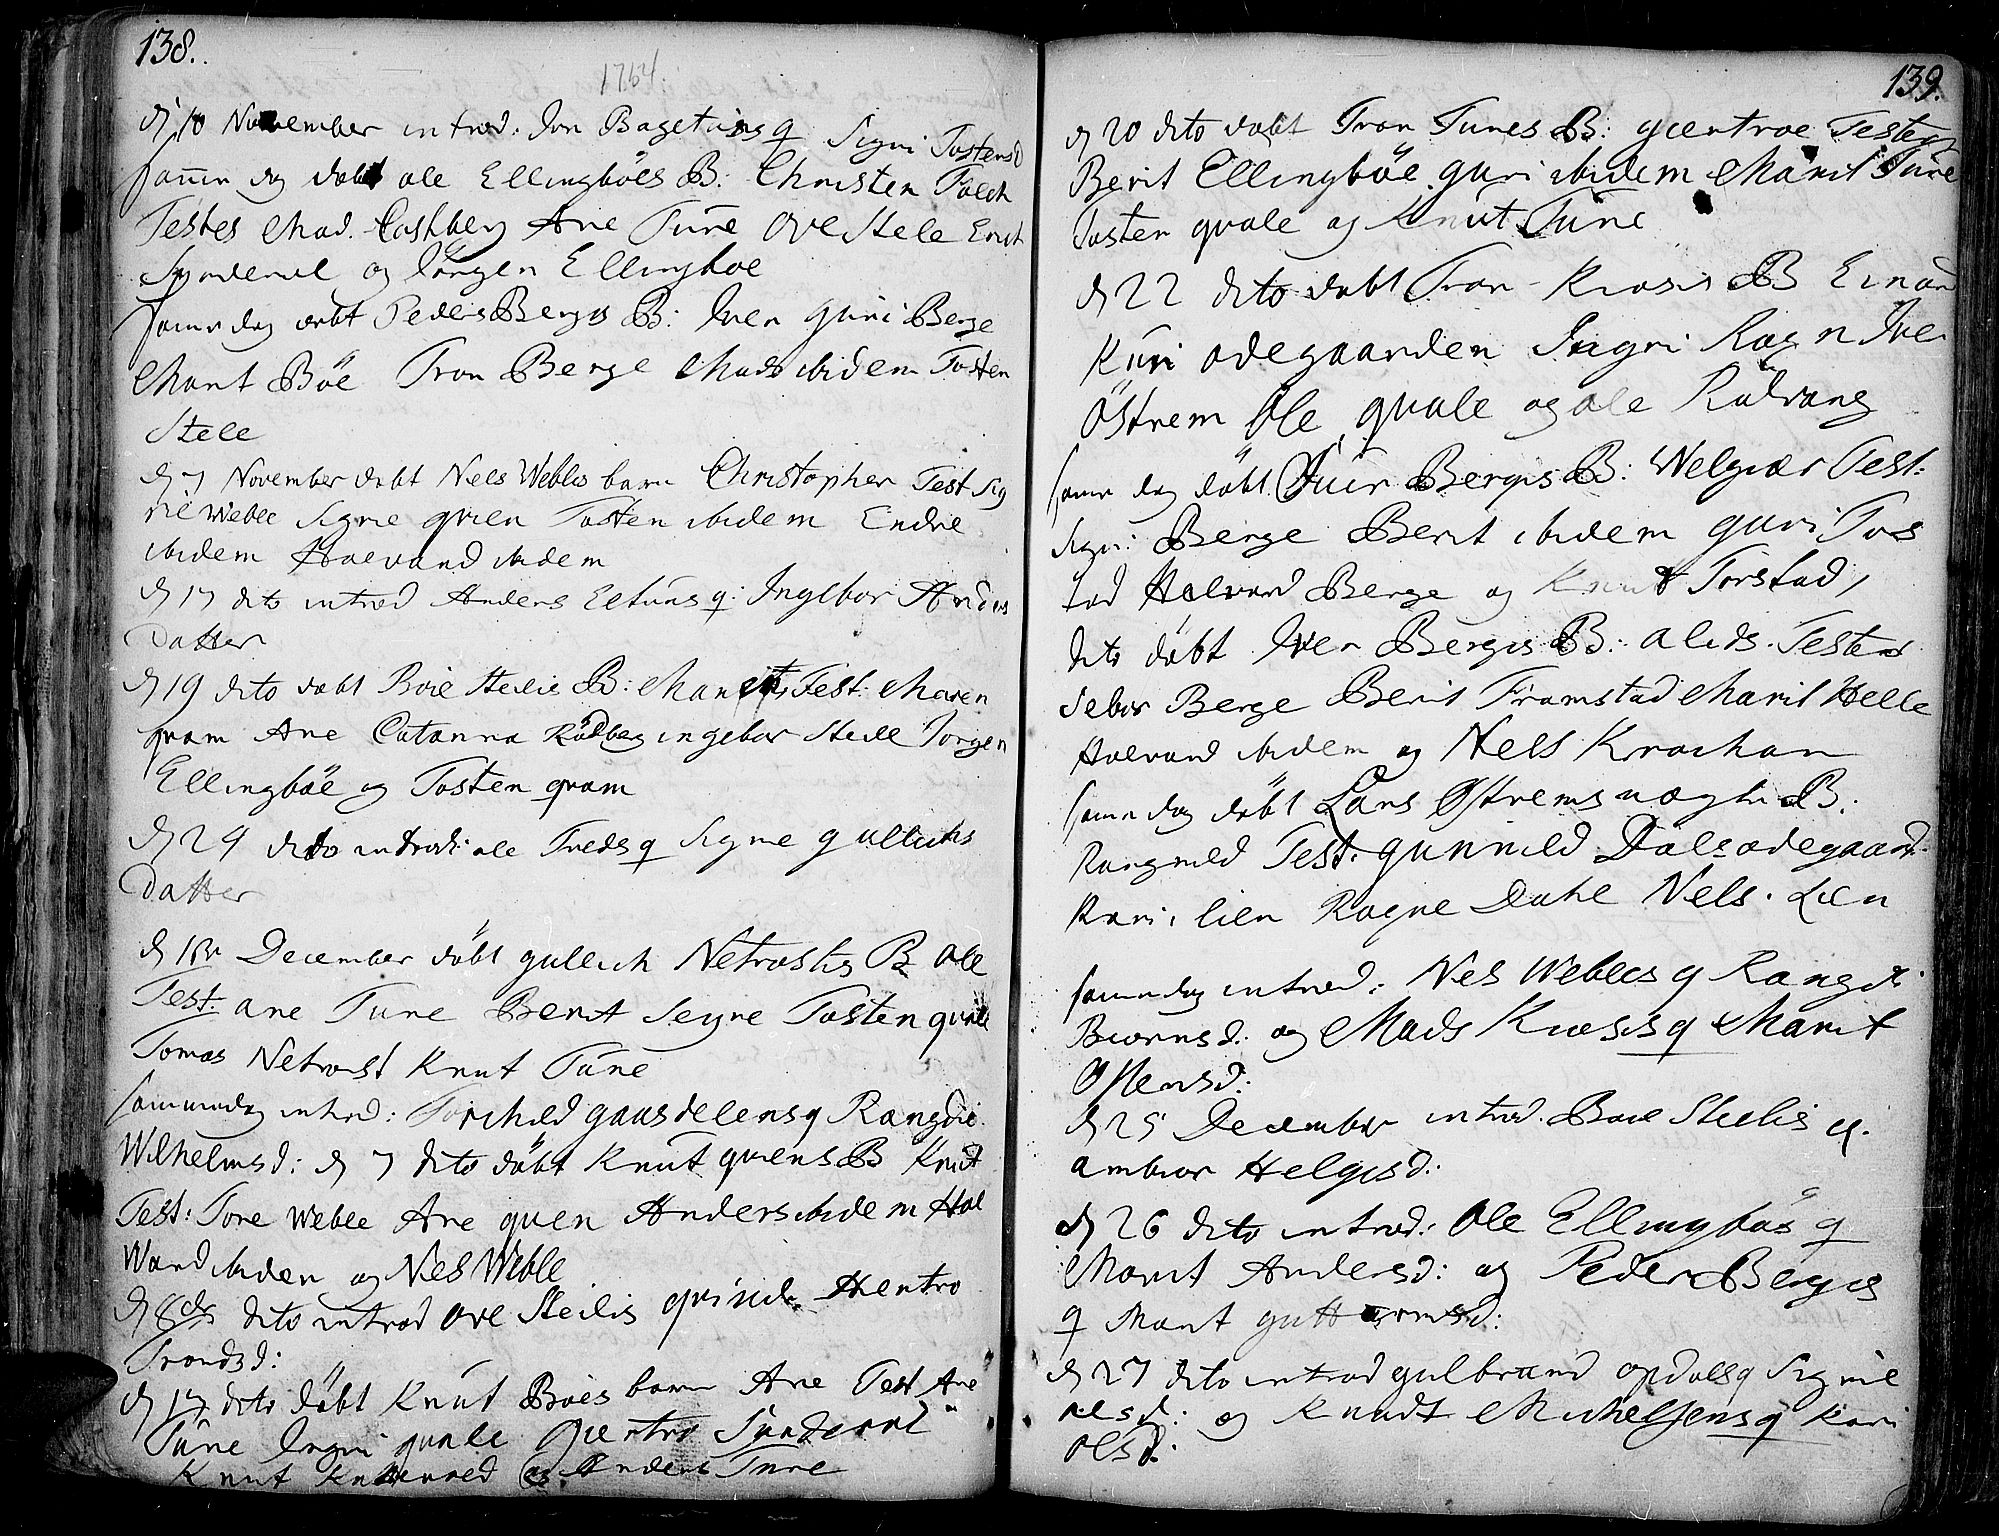 138.
1764.
d 10 November introd: Iver Bagetuns q Sigri Tostensd
samme dag döbt ole Ellingböes B: Christen Falch
Testes Mad. Castberg Ane Tune Ove Stele Erich
Synderoel og Jörgen Ellingböe
samme dag döbt Peders Berges B: Iver Guri Berge
Marit Böe Tron Berge Mads ibidem Tosten
Stele
d 7 November döbt Niels Weblis barn Christopher Test Sig
rie Weble Signe qvien Tosten ibidem Endre
ibidem Halvard ibidem
d 17 dito introd Anders Eltuns q: Ingebor Anders
Datter
d 19 dito döbt Boie Steilis B: Marit Test: Maren
qvam Ane Catarina Rödberg ingebor Steile Jörgen
Ellingböe og Tosten qvam
d 24 dito introd: ole Treds q Signe gulliks
Datter
d December döbt gullich Netrostes B ole
Test. ane Tune Berit Seyne Tosten qvale
Tomas Netrost Knut Tune
sammedag introd: Torchild gausdelens q Rangdi
Wilhelmsd: d 7 dito döbt Knut qviens B Knut
Test: Tore Weble Ane qvien Anders ibidem Hal
Ward ibiden og Nels Weble
d 8de dito introd Ove Steilis qvinde Hentro
Trondsd:
d 17 dito döbt Knut Böes barn Ane Test Ane
Tune Ingri qvale Gientro Synderoel
Knut og Anders Tune
139.
d 20 dito döbt Tron Tunes B: gientroe Testes
Berit Ellingböe guri ibidem Marit Tune
Tosten qvale og Knut Tune
d 22 dito döbt Tron Kiosis B Einar
Kari odegaarden Sigri Rogn Iver
Östrem Ole qvale og ole Rudvang
samme dag döbt Siur Bergis B: Welgier Test:
Sigri: Berge Berit ibidem guri Tos
tad Halvard Berge og Knut Torstad,
dito döbt Iver Bergis B: alids. Testes
Sebor Berge Berit Framstad Marit Helle
Halvard ibidem og Nels Krachan
samme dag döbt Lars Östrems uægte B:
Rangnild Test: gunnild Dalsødegaard
Kari lien Ragne Dahl Nels. Lien
samme dag introd: Nels Webles q Rangdi
Biörnsd: og Mads Kioesis q Marit
Ostensd:
d 25 December introd. Boie Steilis q.
ambior Helgisd:
d 26 dito introd: Ole Ellingböes q
Marit Andersd: og Peder Berges
q Marit guttormsd:
d 27 dito introd gulbrand opdals q Signe
nelsd: og Knudt Michelsens q Kari
olsd: